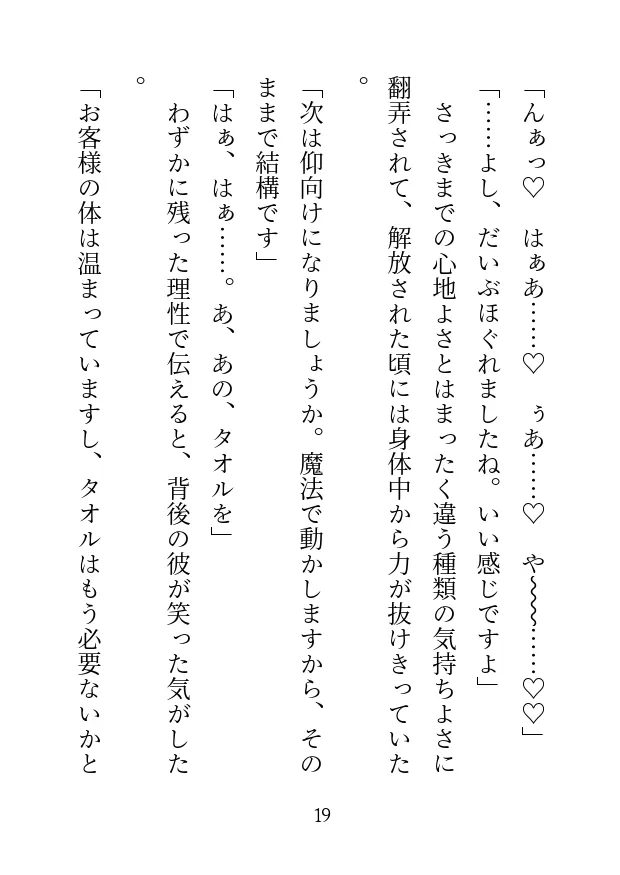 「んぁっ♡　はぁあ……♡　ぅあ……♡　や〜〜〜……♡♡」
「……よし、だいぶほぐれましたね。いい感じですよ」
　さっきまでの心地よさとはまったく違う種類の気持ちよさに
翻弄されて、解放された頃には身体中から力が抜けきっていた
。
「次は仰向けになりましょうか。魔法で動かしますから、その
ままで結構です」
「はぁ、はぁ……。あ、あの、タオルを」
　わずかに残った理性で伝えると、背後の彼が笑った気がした
。
「お客様の体は温まっていますし、タオルはもう必要ないかと
19